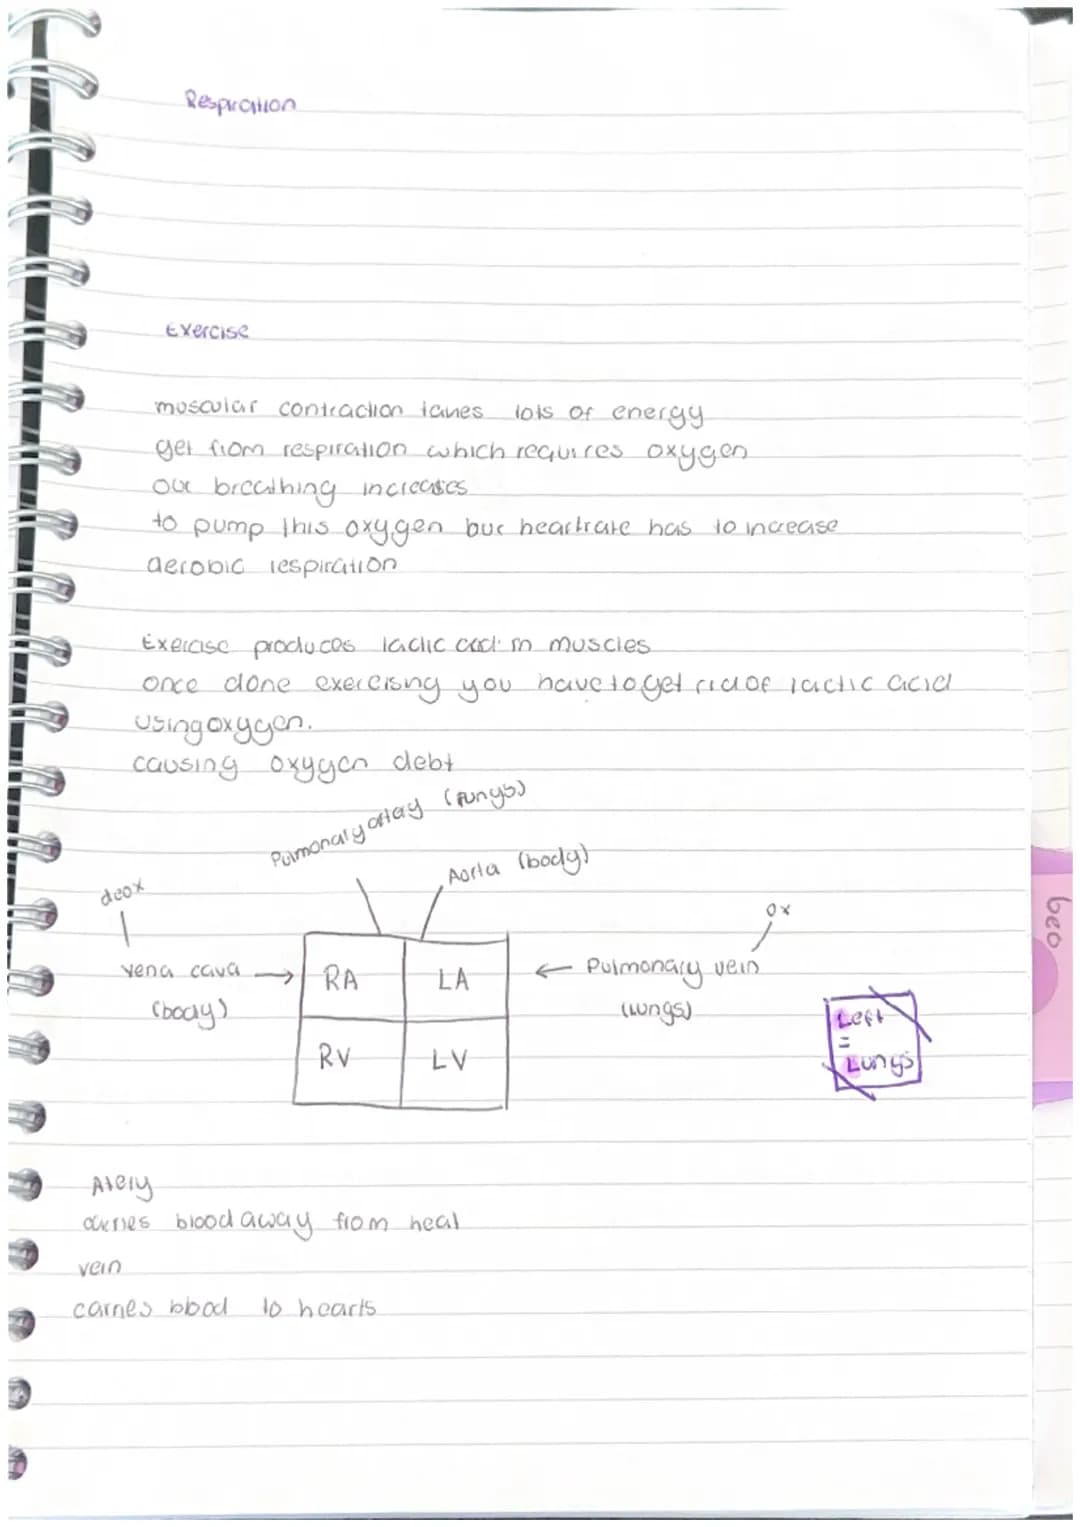 Respiration
Exercise
muscular contraction takes lots of energy
get from respiration which requires oxygen
our breathing increases
to pump this oxygen our heartrate has to increase
aerobic respiration
Exercise produces lactic acid in muscles
once done exercising you have to get rid of lactic acid
using oxygen.
causing oxygen debt
Pulmonary artery (lungs)
Aorta (body)
deox
ox
vena cava
(body)
RA
LA
Pulmonary vein
(lungs)
RV
LV
Left
=
Lungs
Atery
carries blood away from heat
vein
carries blood to hearts